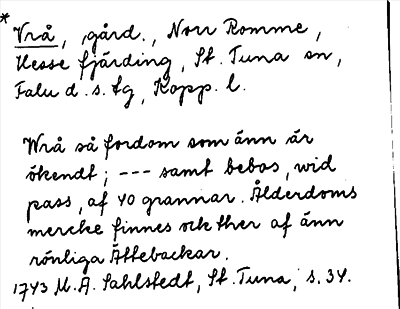 * Vrå, gård., Norr Romme,
Hesse fjärding, St. Tuna sn,
Falu d.s. tg, Kopp. l.
Wrå så fordom som änn är
ökendt; --- samt bebos, wid
pass, af 40 grannar. Ålderdoms
mercke finnes ock ther af änn
rönliga Ättebackar.
1743 M.A. Sahlstedt, St. Tuna, s. 34.